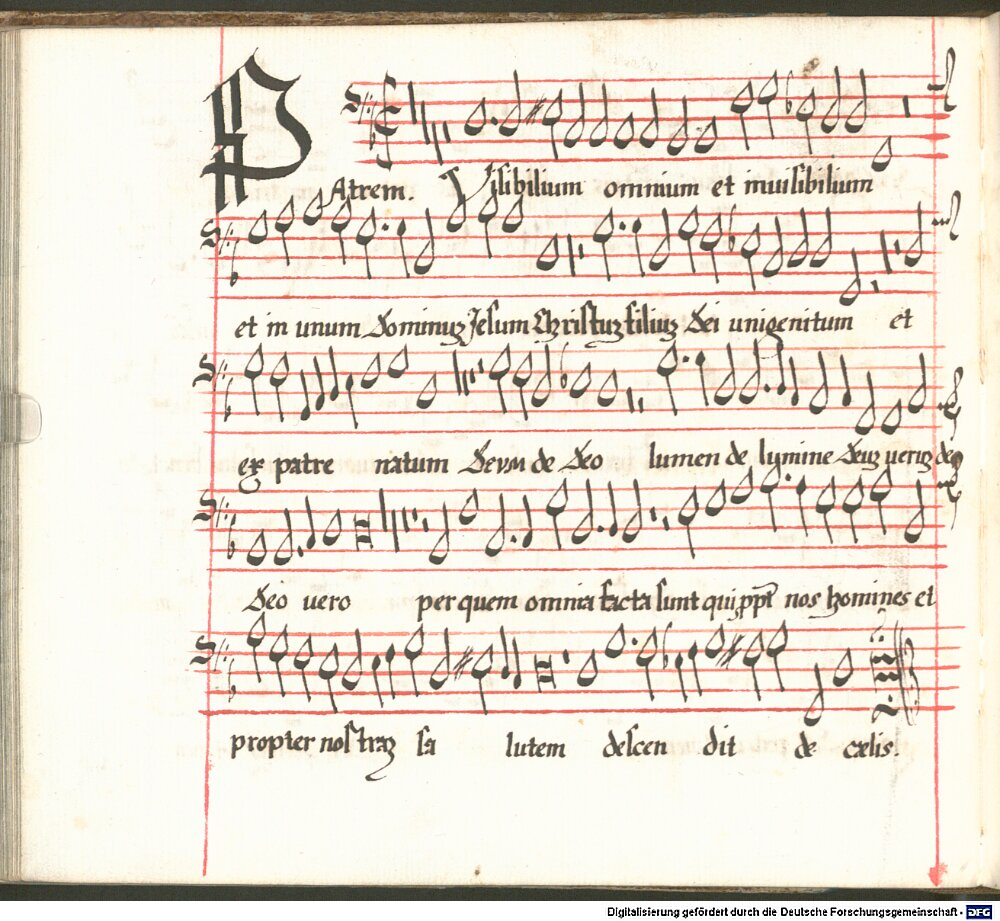 PAtrem. Visibilium omnium et inuisibilium
et in unum Dominuz Jesum Christuz filiuz Dei unigenitum et
ex patre natum Deum de Deo lumen de lumine Deuz ueruz de
Deo uero per quem omnia facta sunt qui ppt nos homines et
propter nostraz sa lutem descen dit de cælis.
Digitalisierung gefördert durch die Deutsche Forschungsgemeinschaft - DFG